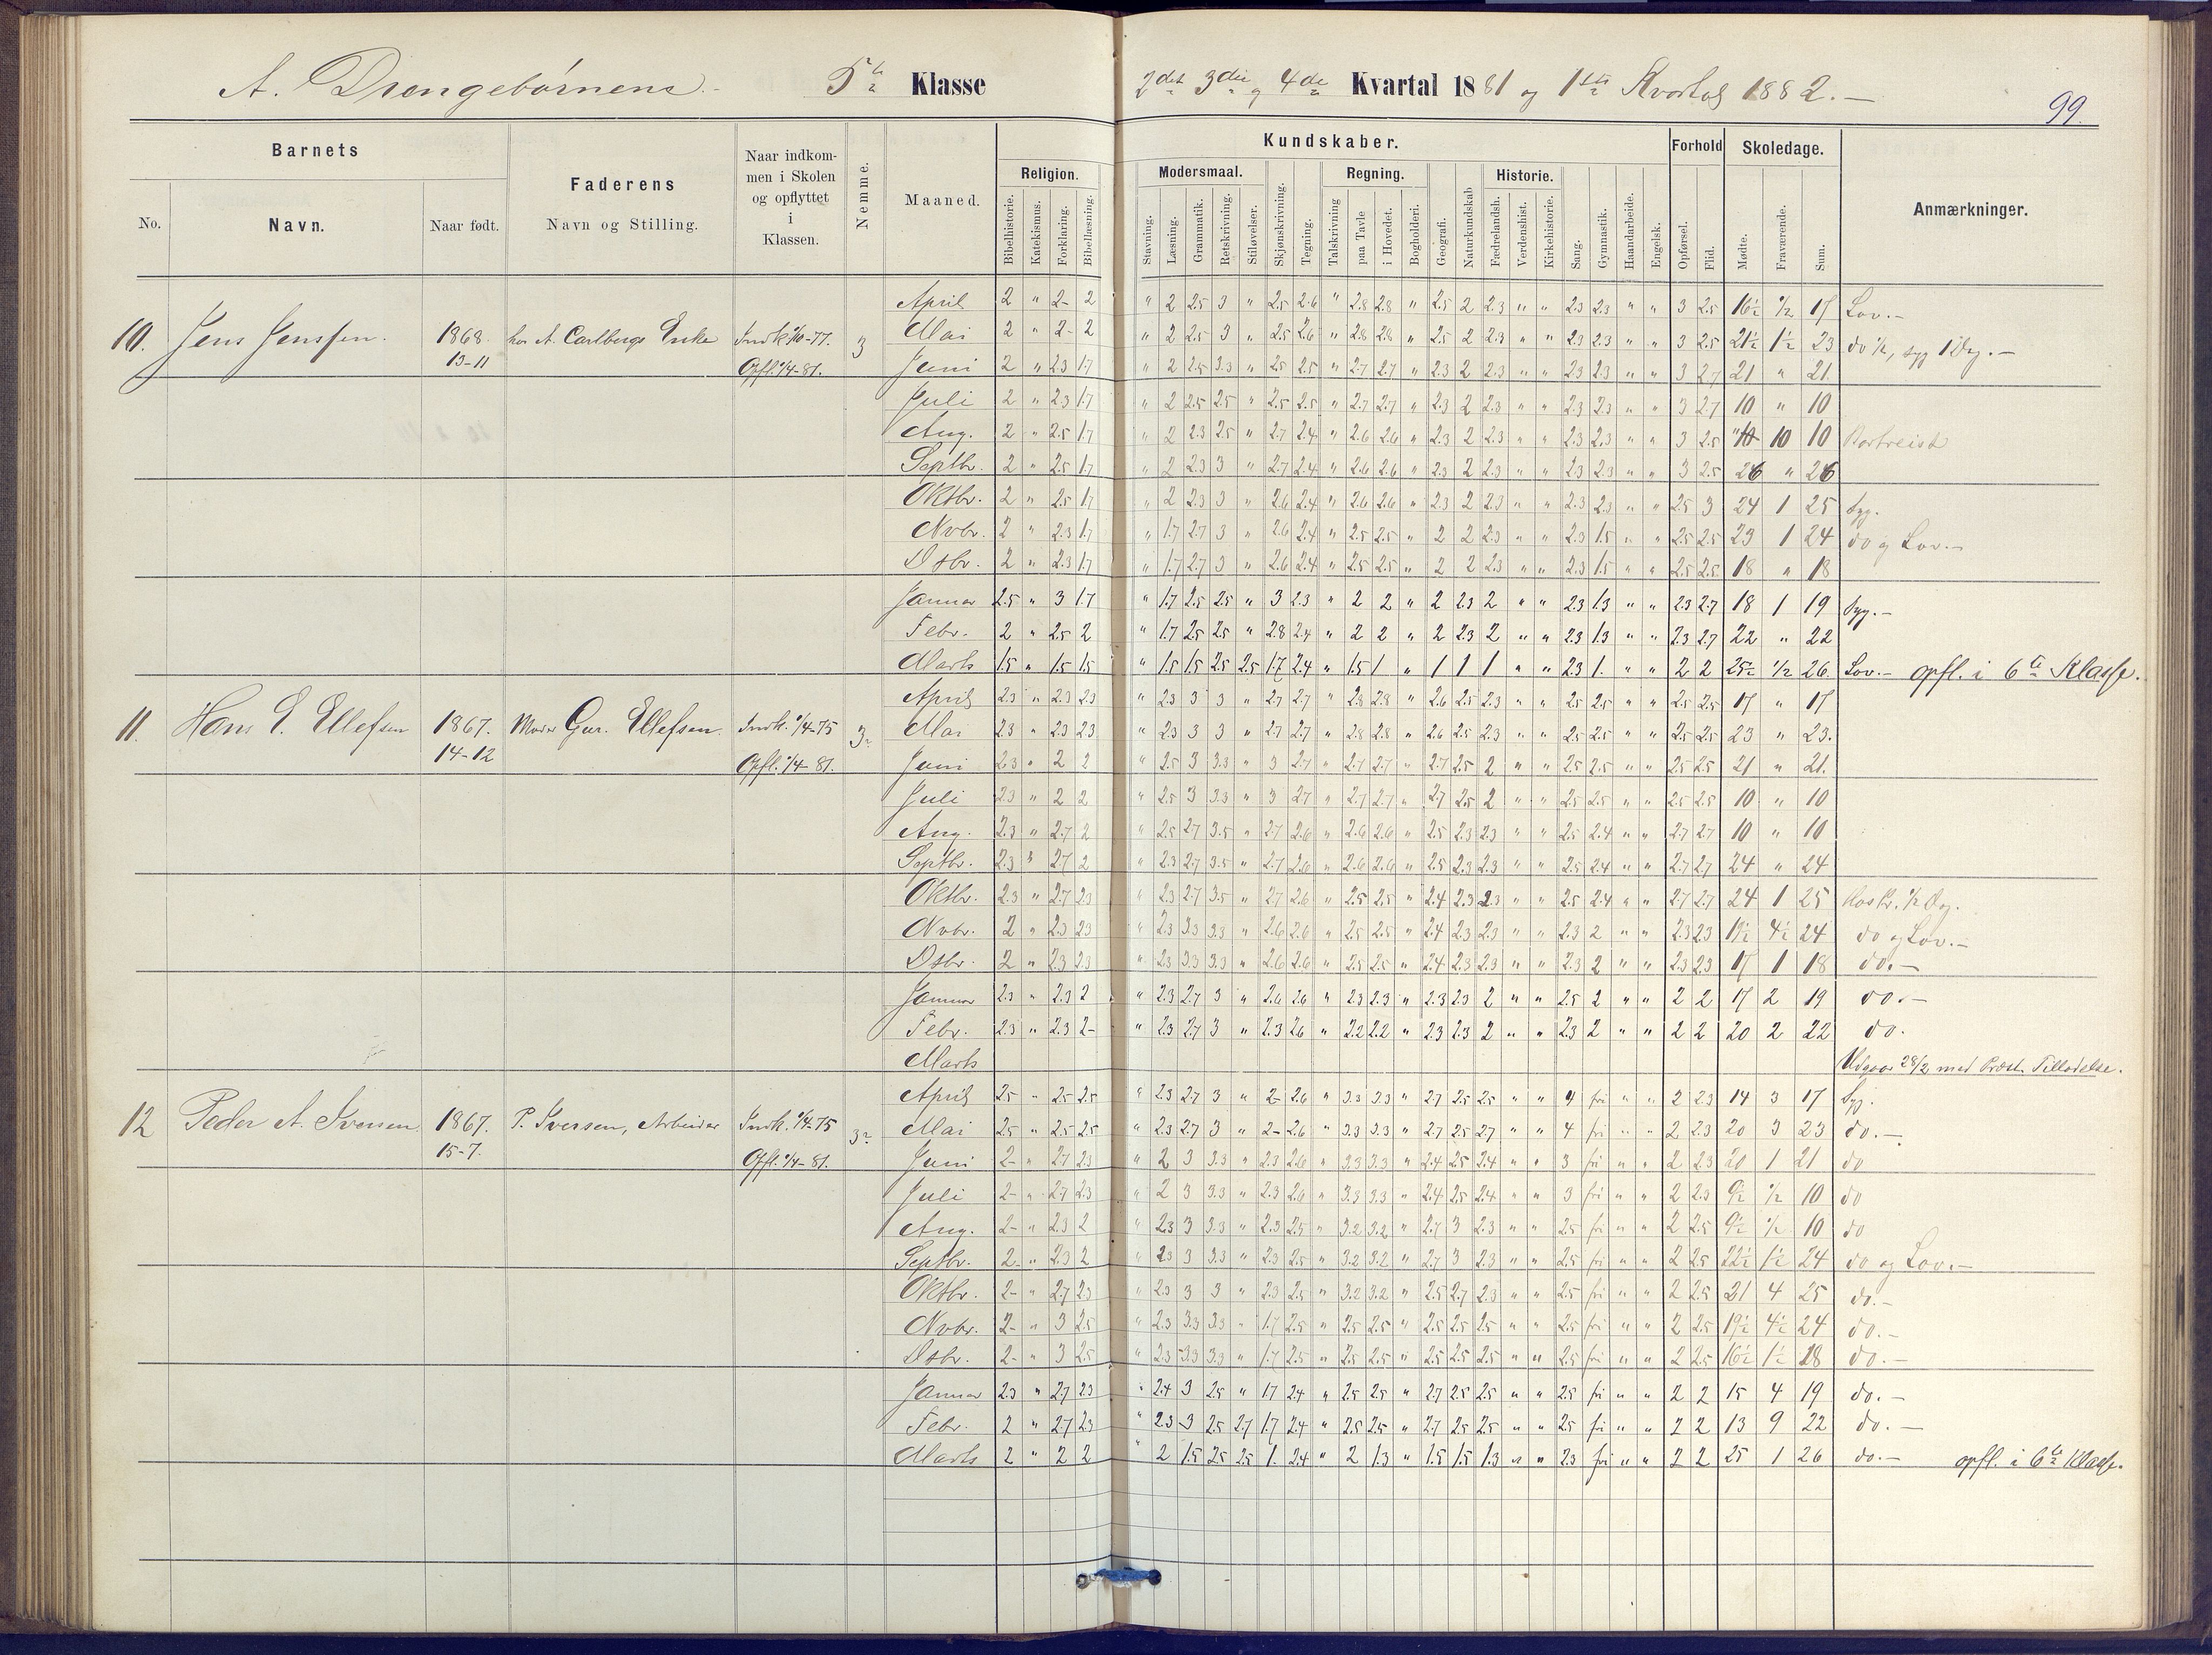 A. Drengebørnens. 5te Klasse 2det 3die og 4de Kvartal 1881 og 1ste Kvartal 1882.
99.
Barnets
No.
Navn.
Naar født.
Faderens
Navn og Stilling.
Naar indkom-
men i Skolen
og opflyttet
i
Klassen.
Nemme.
Maaned.
Kundskaber.
Religion.
Bibelhistorie.
Katekismus.
Forklaring.
Bibellæsning.
Modersmaal.
Stavning.
Læsning.
Grammatik.
Retskrivning.
Stiløvelser.
Skjønskrivning.
Tegning.
Regning.
Talskrivning
paa Tavle
i Hovedet.
Bogholderi.
Geografi.
Naturkundskab
Historie.
Fædrelandsh.
Verdenshist.
Kirkehistorie.
Sang.
Gymnastik.
Haandarbeide.
Engelsk.
Forhold
Opførsel.
Flid.
Skoledage.
Mødte.
Fraværende.
Sum.
Anmærkninger.
10. Jens Jensen. 1868. 13-11 hos A. Carlbergs Enke Opfl. 1/4-81. 3
April 2 " 2- 2 " 2 2.5 3 " 2.5 2.6 " 2.8 2.8 " 2.5 2 2.3 " " 2.3 2.3 " " 3 2.5 16½ ½ 17 Lov.-
Mai 2 " 2- 2 " 2 2.5 3 " 2.5 2.6 " 2.8 2.8 " 2.5 2 2.3 " " 2.3 2.3 " " 3 2.5 21½ 1½ 23 do ½, syg 1 Dg.-
Juni 2 " 2.3 1.7 " 2 2.5 3.3 " 2.5 2.5 " 2.7 2.7 " 2.3 2 2.3 " " 2.3 2.3 " " 3 2.7 21 " 21.
Juli 2 " 2.3 1.7 " 2 2.5 2.5 " 2.5 2.5 " 2.7 2.7 " 2.3 2 2.3 " " 2.3 2.3 " " 3 2.7 10 " 10
Aug. 2 " 2.5 1.7 " 2 2.3 2.5 " 2.7 2.4 " 2.6 2.6 " 2.3 2 2.3 " " 2.3 2.3 " " 3 2.5 " 10 10 Bortreist
Septbr. 2 " 2.5 1.7 " 2 2.3 3 " 2.7 2.4 " 2.6 2.6 " 2.3 2 2.3 " " 2.3 2.3 " " 3 2.5 26 " 26
Oktbr. 2 " 2.5 1.7 " 2 2.3 3 " 2.6 2.4 " 2.6 2.6 " 2.3 2 2.3 " " 2.3 2.3 " " 2.5 3 24 1 25 Syg.
Nvbr. 2 " 2.3 1.7 " 1.7 2.7 3 " 2.6 2.4 " 2.5 2.5 " 2 2 2.3 " " 2.3 1.5 " " 2.5 2.5 23 1 24 do og Lov.-
Dsbr. 2 " 2.3 1.7 " 1.7 2.7 3 " 2.6 2.4 " 2.5 2.5 " 2 2 2.3 " " 2.3 1.5 " " 2.5 2.5 18 " 18
Januar 2.5 " 3 1.7 " 1.7 2.5 2.5 " 3 2.3 " 2 2 " 2 2.3 2 " " 2.3 1.3 " " 2.3 2.7 18 1 19 Syg.-
Febr. 2 " 2.5 2 " 1.7 2.5 2.5 " 2.8 2.4 " 2 2 " 2 2.3 2 " " 2.3 1.3 " " 2.3 2.7 22 " 22
Marts 1.5 " 1.5 1.5 " 1.5 1.5 2.5 2.5 1.7 2.4 " 1.5 1 " 1 1 1 " " 2.3 1. " " 2 2 25½ ½ 26. Lov.- opfl. i 6te Klasse.
11. Hans E. Ellefsen 1867. 14-12 Moder Gur. Ellefsen. Indk. 1/4-75 Opfl. 1/4-81. 3
April 2.3 " 2.3 2.3 " 2.3 3 3 " 2.7 2.7 " 2.8 2.8 " 2.6 2.5 2.3 " " 2.5 2.5 " " 2.5 2.5 17 " 17
Mai 2.3 " 2.3 2.3 " 2.3 3 3 " 2.7 2.7 " 2.8 2.8 " 2.6 2.5 2.3 " " 2.5 2.5 " " 2.5 2.5 23 " 23.
Juni 2.3 " 2 2 " 2.5 3 3.3 " 3 2.7 " 2.7 2.7 " 2.7 2.5 2 " " 2.5 2.5 " " 2.5 2.5 21 " 21.
Juli 2.3 " 2 2 " 2.5 3 3.3 " 3 2.7 " 2.7 2.7 " 2.7 2.5 2 " " 2.5 2.5 " " 2.5 2.5 10 " 10
Aug. 2.3 " 2.7 2 " 2.5 2.7 3.5 " 2.7 2.6 " 2.6 2.6 " 2.5 2.3 2.3 " " 2.5 2.4 " " 2.7 2.7 10 " 10
Septbr. 2.3 " 2.7 2 " 2.3 2.7 3.5 " 2.7 2.6 " 2.6 2.6 " 2.5 2.3 2.3 " " 2.5 2.4 " " 2.7 2.7 24 " 24
Oktbr. 2.3 " 2.7 2.3 " 2.3 2.7 3.5 " 2.7 2.6 " 2.5 2.5 " 2.4 2.3 2.3 " " 2.5 2.4 " " 2.7 2.7 24 1 25
Nvbr. 2 " 2.3 2.3 " 2.3 3.3 3.3 " 2.6 2.6 " 2.5 2.5 " 2.4 2.3 2.3 " " 2.3 2 " " 2.3 2.3 19½ 4½ 24 do og Lov.-
Dsbr. 2 " 2.3 2.3 " 2.3 3.3 3.3 " 2.6 2.6 " 2.5 2.5 " 2.4 2.3 2.3 " " 2.3 2 " " 2.3 2.3 17 1 18 do.-
Januar 2.3 " 2.3 2 " 2.3 2.7 3 " 2.6 2.6 " 2.3 2.3 " 2.3 2.3 2 " " 2.5 2 " " 2 2 17 2 19 do.-
Febr. 2.3 " 2.3 2- " 2.3 2.7 3 " 2.3 2.6 " 2.2 2.2 " 2.3 2.3 2 " " 2.3 2 " " 2 2 20 2 22 do.
Marts Udgaar 28/2 med Præst. Tilladelse.
12 Peder A. Iversen 1867. 15-7. P. Iversen, Arbeider Indk. 1/4-75 Opfl. 1/4-81. 3
April 2.5 " 2.5 2.5 " 2.3 2.7 3 " 2- 2.6 " 3.3 3.3 " 2.7 2.5 2.5 " " 4 fri " " 2 2.3 14 3 17 Syg.
Mai 2.5 " 2.5 2.5 " 2.3 2.7 3 " 2- 2.6 " 3.3 3.3 " 2.7 2.5 2.7 " " 4 fri " " 2 2.3 20 3 23 do.-
Juni 2- " 2.7 2.3 " 2 3 3.3 " 2.3 2.6 " 3.3 3.3 " 2.4 2.5 2.4 " " 3 fri " " 2 2.3 20 1 21 do
Juli 2- " 2.7 2.3 " 2 3 3.3 " 2.3 2.6 " 3.3 3.3 " 2.4 2.5 2.4 " " 3 fri " " 2 2.3 9½ ½ 10 do
Aug. 2- " 2.3 2 " 2.3 3 3.3 " 2.3 2.5 " 3.2 3.2 " 2.7 3 2.3 " " 2.5 fri " " 2 2.5 9½ ½ 10 do
Septbr. 2- " 2.3 2 " 2.3 3 3.3 " 2.3 2.5 " 3.2 3.2 " 2.7 3 2.3 " " 2.5 fri " " 2 2.5 22½ 1½ 24 do og Lov.-
Oktbr. 2- " 2.7 2.3 " 2.3 3 3 " 2.3 2.5 " 3.2 3.2 " 2.5 2.7 2.3 " " 2.5 fri " " 2 2.5 21 4 25 do.-
Nvbr. 2- " 3 2.5 " 2.3 3.3 3.3 " 1.7 2.5 " 2.5 2.5 " 2.5 2.5 2.5 " " 2.5 fri " " 2 2.5 19½ 4½ 24 do.-
Dsbr. 2- " 3 2.5 " 2.3 3.3 3.3 " 1.7 2.5 " 2.5 2.5 " 2.5 2.5 2.5 " " 2.5 fri " " 2 2.5 16½ 1½ 18 do.-
Januar 2.3 " 2.7 2.3 " 2.4 3 2.5 " 1.7 2.4 " 2.5 2.5 " 2.7 2.5 2.5 " " 2.5 fri " " 2 2 15 4 19 do.-
Febr. 2 " 2.7 2.3 " 2.3 3 2.5 2.7 1.7 2.4 " 2.5 2.5 " 2.7 2.5 2.5 " " 2.5 fri " " 2 2 13 9 22 do.-
Marts 2 " 2 2 " 2 1.5 2.5 2.5 1. 2.4 " 2 1.3 " 1.5 1.5 1.3 " " 2.3 fri " " 2 2 25 1 26 do.- opfl. i 6te Klasse.